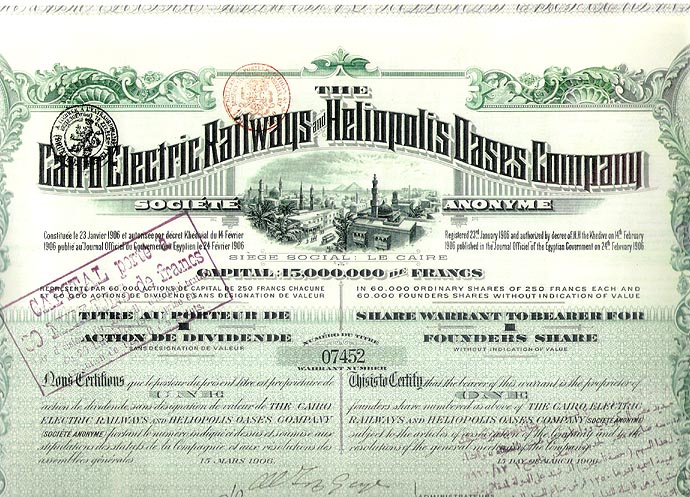 THE
Cairo Electric Railways and Heliopolis Oases Company
SOCIÉTÉ ANONYME
Constituée le 23 Janvier 1906 et autorisée par décret Khédivial du 14 Février
1906 publié au Journal Officiel du Gouvernement Egyptien le 24 Février 1906
Registered 23rd January 1906 and authorized by decree of H.H the Khedive on 14th February
1906 published in the Journal Officiel of the Egyptian Government on 24th February 1906
SIEGE SOCIAL: LE CAIRE
CAPITAL: 15,000,000 DE FRANCS
REPRÉSENTÉ PAR 60.000 ACTIONS DE CAPITAL DE 250 FRANCS CHACUNE
ET 60.000 ACTIONS DE DIVIDENDE SANS DESIGNATION DE VALEUR
IN 60.000 ORDINARY SHARES OF 250 FRANCS EACH AND
60.000 FOUNDERS SHARES WITHOUT INDICATION OF VALUE
CAPITAL porté à
50 de francs
TITRE AU PORTEUR DE
1
ACTION DE DIVIDENDE
SANS DESIGNATION DE VALEUR
SHARE WARRANT TO BEARER FOR
1
FOUNDERS SHARE
WITHOUT INDICATION OF VALUE
NUMÉRO DU TITRE
07452
WARRANT NUMBER
Nous Certifions que le porteur du présent titre est propriétaire de
UNE
action de dividende sans désignation de valeur de THE CAIRO
ELECTRIC RAILWAYS AND HELIOPOLIS OASES COMPANY
(SOCIÉTÉ ANONYME) portant le numéro indiqué ci dessus et soumise aux
stipulations des statuts de la Compagnie et aux résolutions des
assemblées générales.
15 MARS 1906.
This is to Certify that the bearer of this warrant is the proprietor of
ONE
founders share numbered as above of THE CAIRO ELECTRIC
RAILWAYS AND HELIOPOLIS OASES COMPANY (SOCIÉTÉ ANONYME)
subject to the articles of association of the Company and to the
resolutions of the general meetings of the Company.
15 DAY OF MARCH 1906.
ADMINISTRATEURS